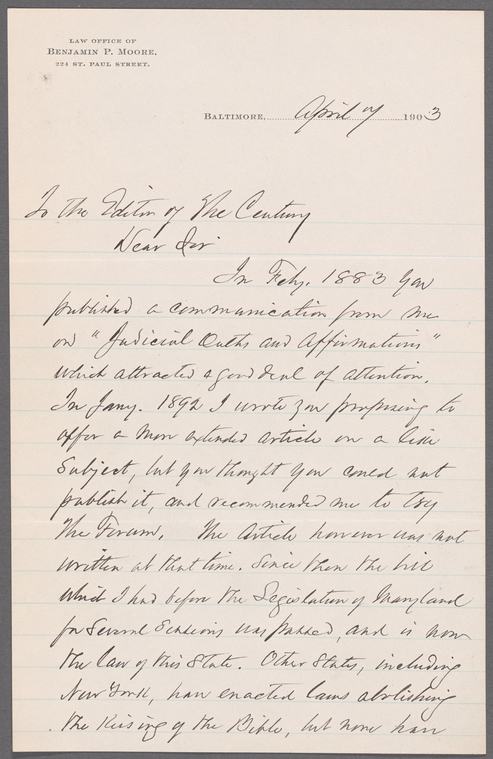 LAW OFFICE OF
BENJAMIN P. MOORE,
224 ST. PAUL STREET.
BALTIMORE, April 7 1903
To the Editor of The Century
Dear Sir
In Feby. 1883 you
published a communication from me
on "Judicial Oaths and Affirmations"
which attracted a good deal of attention.
In Jany. 1892 I wrote you proposing to
offer a more extended article on a like
subject, but you thought you could not
publish it, and recommended me to try
The Forum. The Article however was not
written at that time. Since then the bill
which I had before the Legislature of Maryland
for several sessions was passed, and is now
the law of this State. Other States, including
New York, have enacted laws abolishing
the Kissing of the Bible, but none have